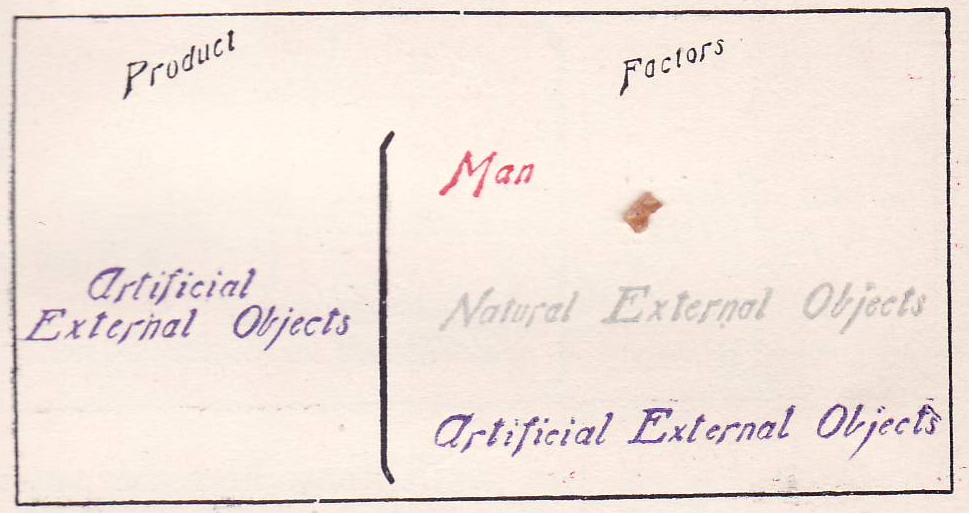 Product
Factors
Man
Artificial
External Objects
Natural External Objects
Artificial External Objects